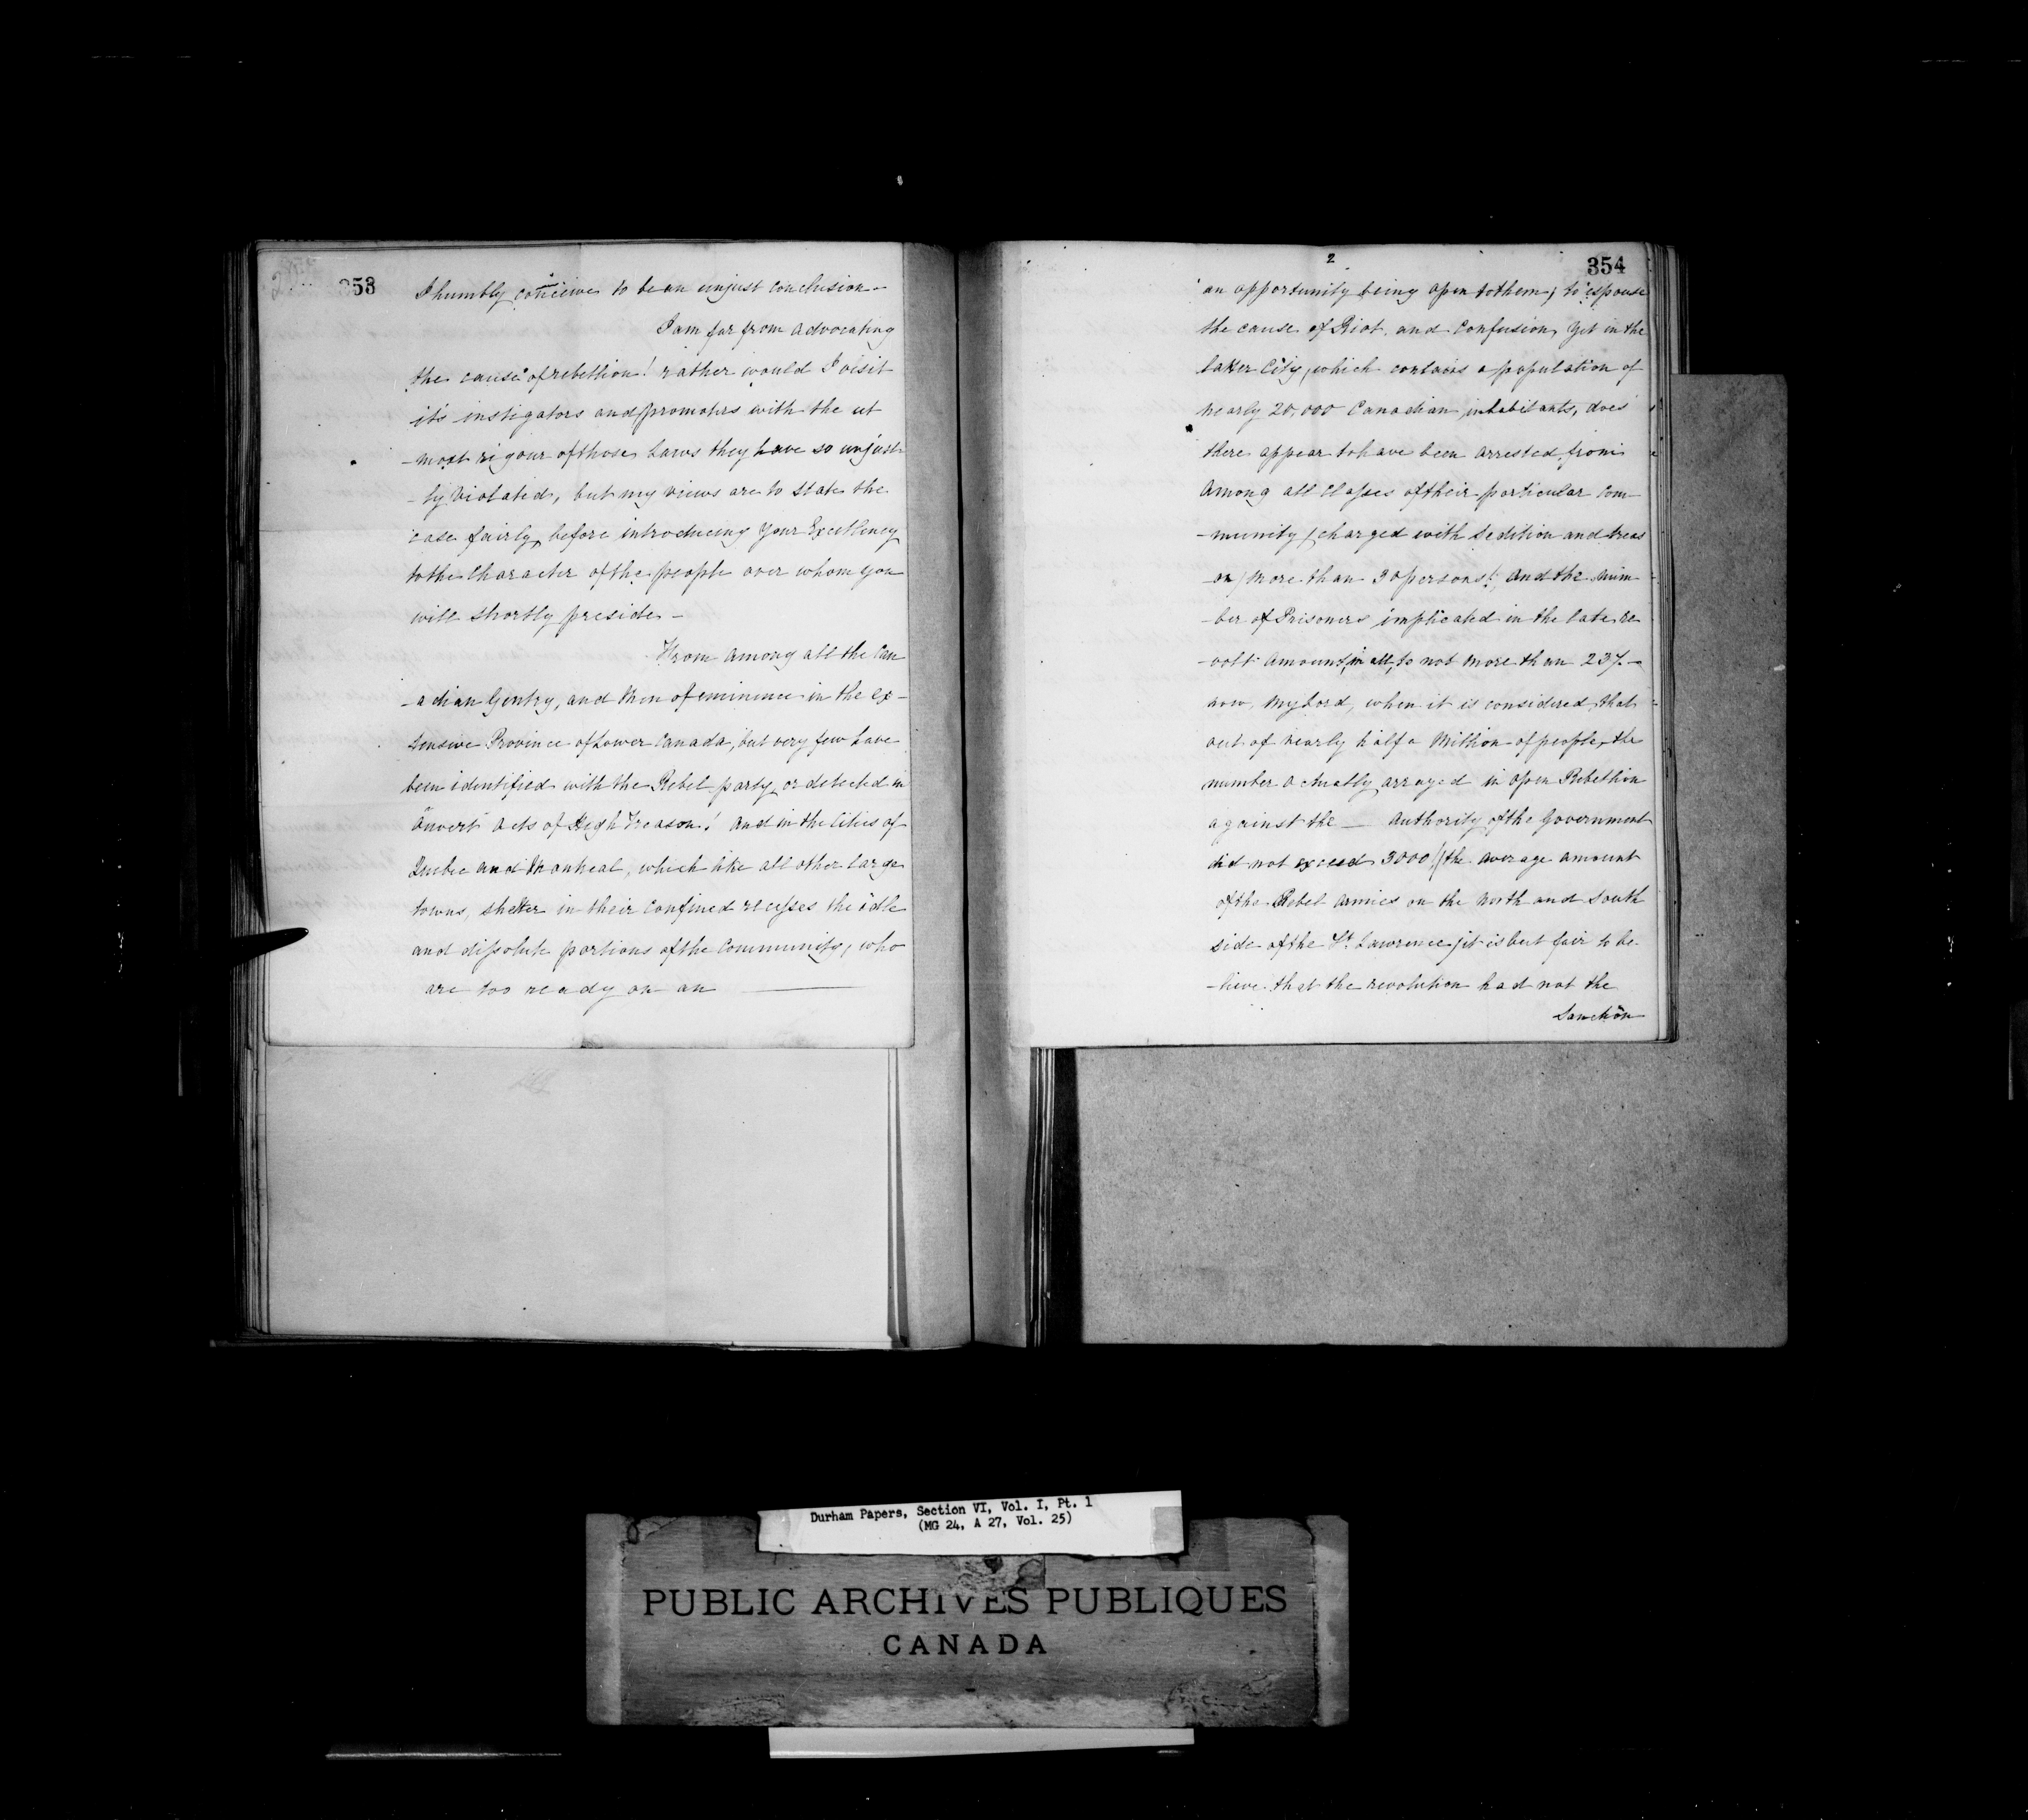 353
I humbly conceive to be an unjust conclusion.
I am far from advocating
the cause of rebellion! rather would I visit
it's instigators and promoters with the ut
-most rigour of those Laws they have so unjust
-ly violated, but my views are to state the
case fairly, before introducing Your Excellency
to the Character of the people over whom you
will shortly preside -
From among all the Can
-adian Gentry, and Men of eminence in the ex-
tensive Province of Lower Canada, but very few have
been identified with the Rebel party, or detected in
overt acts of High Treason! And in the Cities of
Quebec and Montreal, which like all other large
towns, shelter in their confined recesses the idle
and dissolute portions of the Community, who
are too ready on an
2
354
an opportunity being open to them, to espouse
the cause of Riot and Confusion, yet in the
latter City, which contains a population of
nearly 20,000 Canadian inhabitants, does
there appear to have been arrested from
Among all Classes of their particular Com-
-munity (charged with Sedition and treas
-on) more than 30 persons!, and the Num
-ber of Prisoners implicated in the late re
-volt Amount, in all, to not more than 237. -
now, My Lord, when it is considered, that
out of nearly half a Million of people, the
number actually arrayed in open Rebellion
against the — Authority of the Government
did not exceed 3000! (the average amount
of the Rebel Armies on the North and South
side of the St. Lawrence) it is but fair to be
-lieve that the revolution had not the
Sanction
Durham Papers, Section VI, Vol. I, Pt. 1
(MG 24, A 27, Vol. 25)
PUBLIC ARCHIVES PUBLIQUES
CANADA